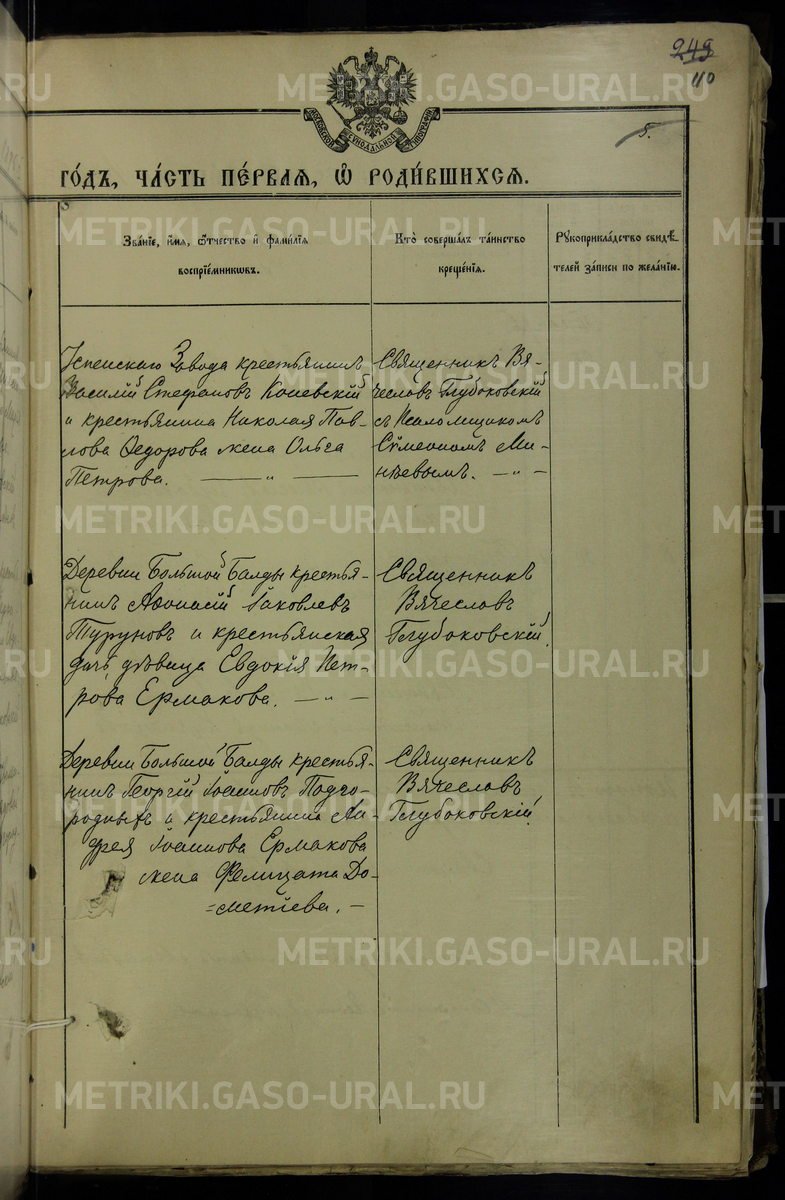 249
110
5.
МОСКОВСКОЙ СѴНОДАЛЬНОЙ ТИПОГРАФІИ
ГО́ДЪ, ЧА́СТЬ ПЕ́РВАЯ, Ѽ РОДИ́ВШИХСЯ.
Зва́нїе, и҆́мя, ѻ҆́тчество и҆ фами́лїя
воспрїе́мникωвъ.
Кто̀ соверша́лъ та́инство
креще́нїя.
Рꙋкоприкла́дство свидѣ́-
телей за́писи по жела́нїю.
Успенскаго Завода крестьянинъ
Василій Стефановъ Коневскій
и крестьянина Николая Пав-
лова Ѳедорова жена Ольга
Петрова. — „ —
Священникъ Вя-
чеславъ Глубоковскій
съ Псаломщикомъ
Сѵмеономъ Ми-
нѣевымъ. — „ —
Деревни Большой Балды крестья-
нинъ Аѳонасій Іаковлевъ
Туруновъ и крестьянская
дочь, дѣвица Евдокія Пет-
рова Ермакова. — „ —
Священникъ
Вячеславъ
Глубоковскій.
Деревни Большой Балды крестья-
нинъ Георгій Іоанновъ Подго-
родныхъ и крестьянина Ан-
дрея Іоаннова Ермакова
жена Фелицата До-
=метіева. —
Священникъ
Вячеславъ
Глубоковскій.
METRIKI.GASO-URAL.RU